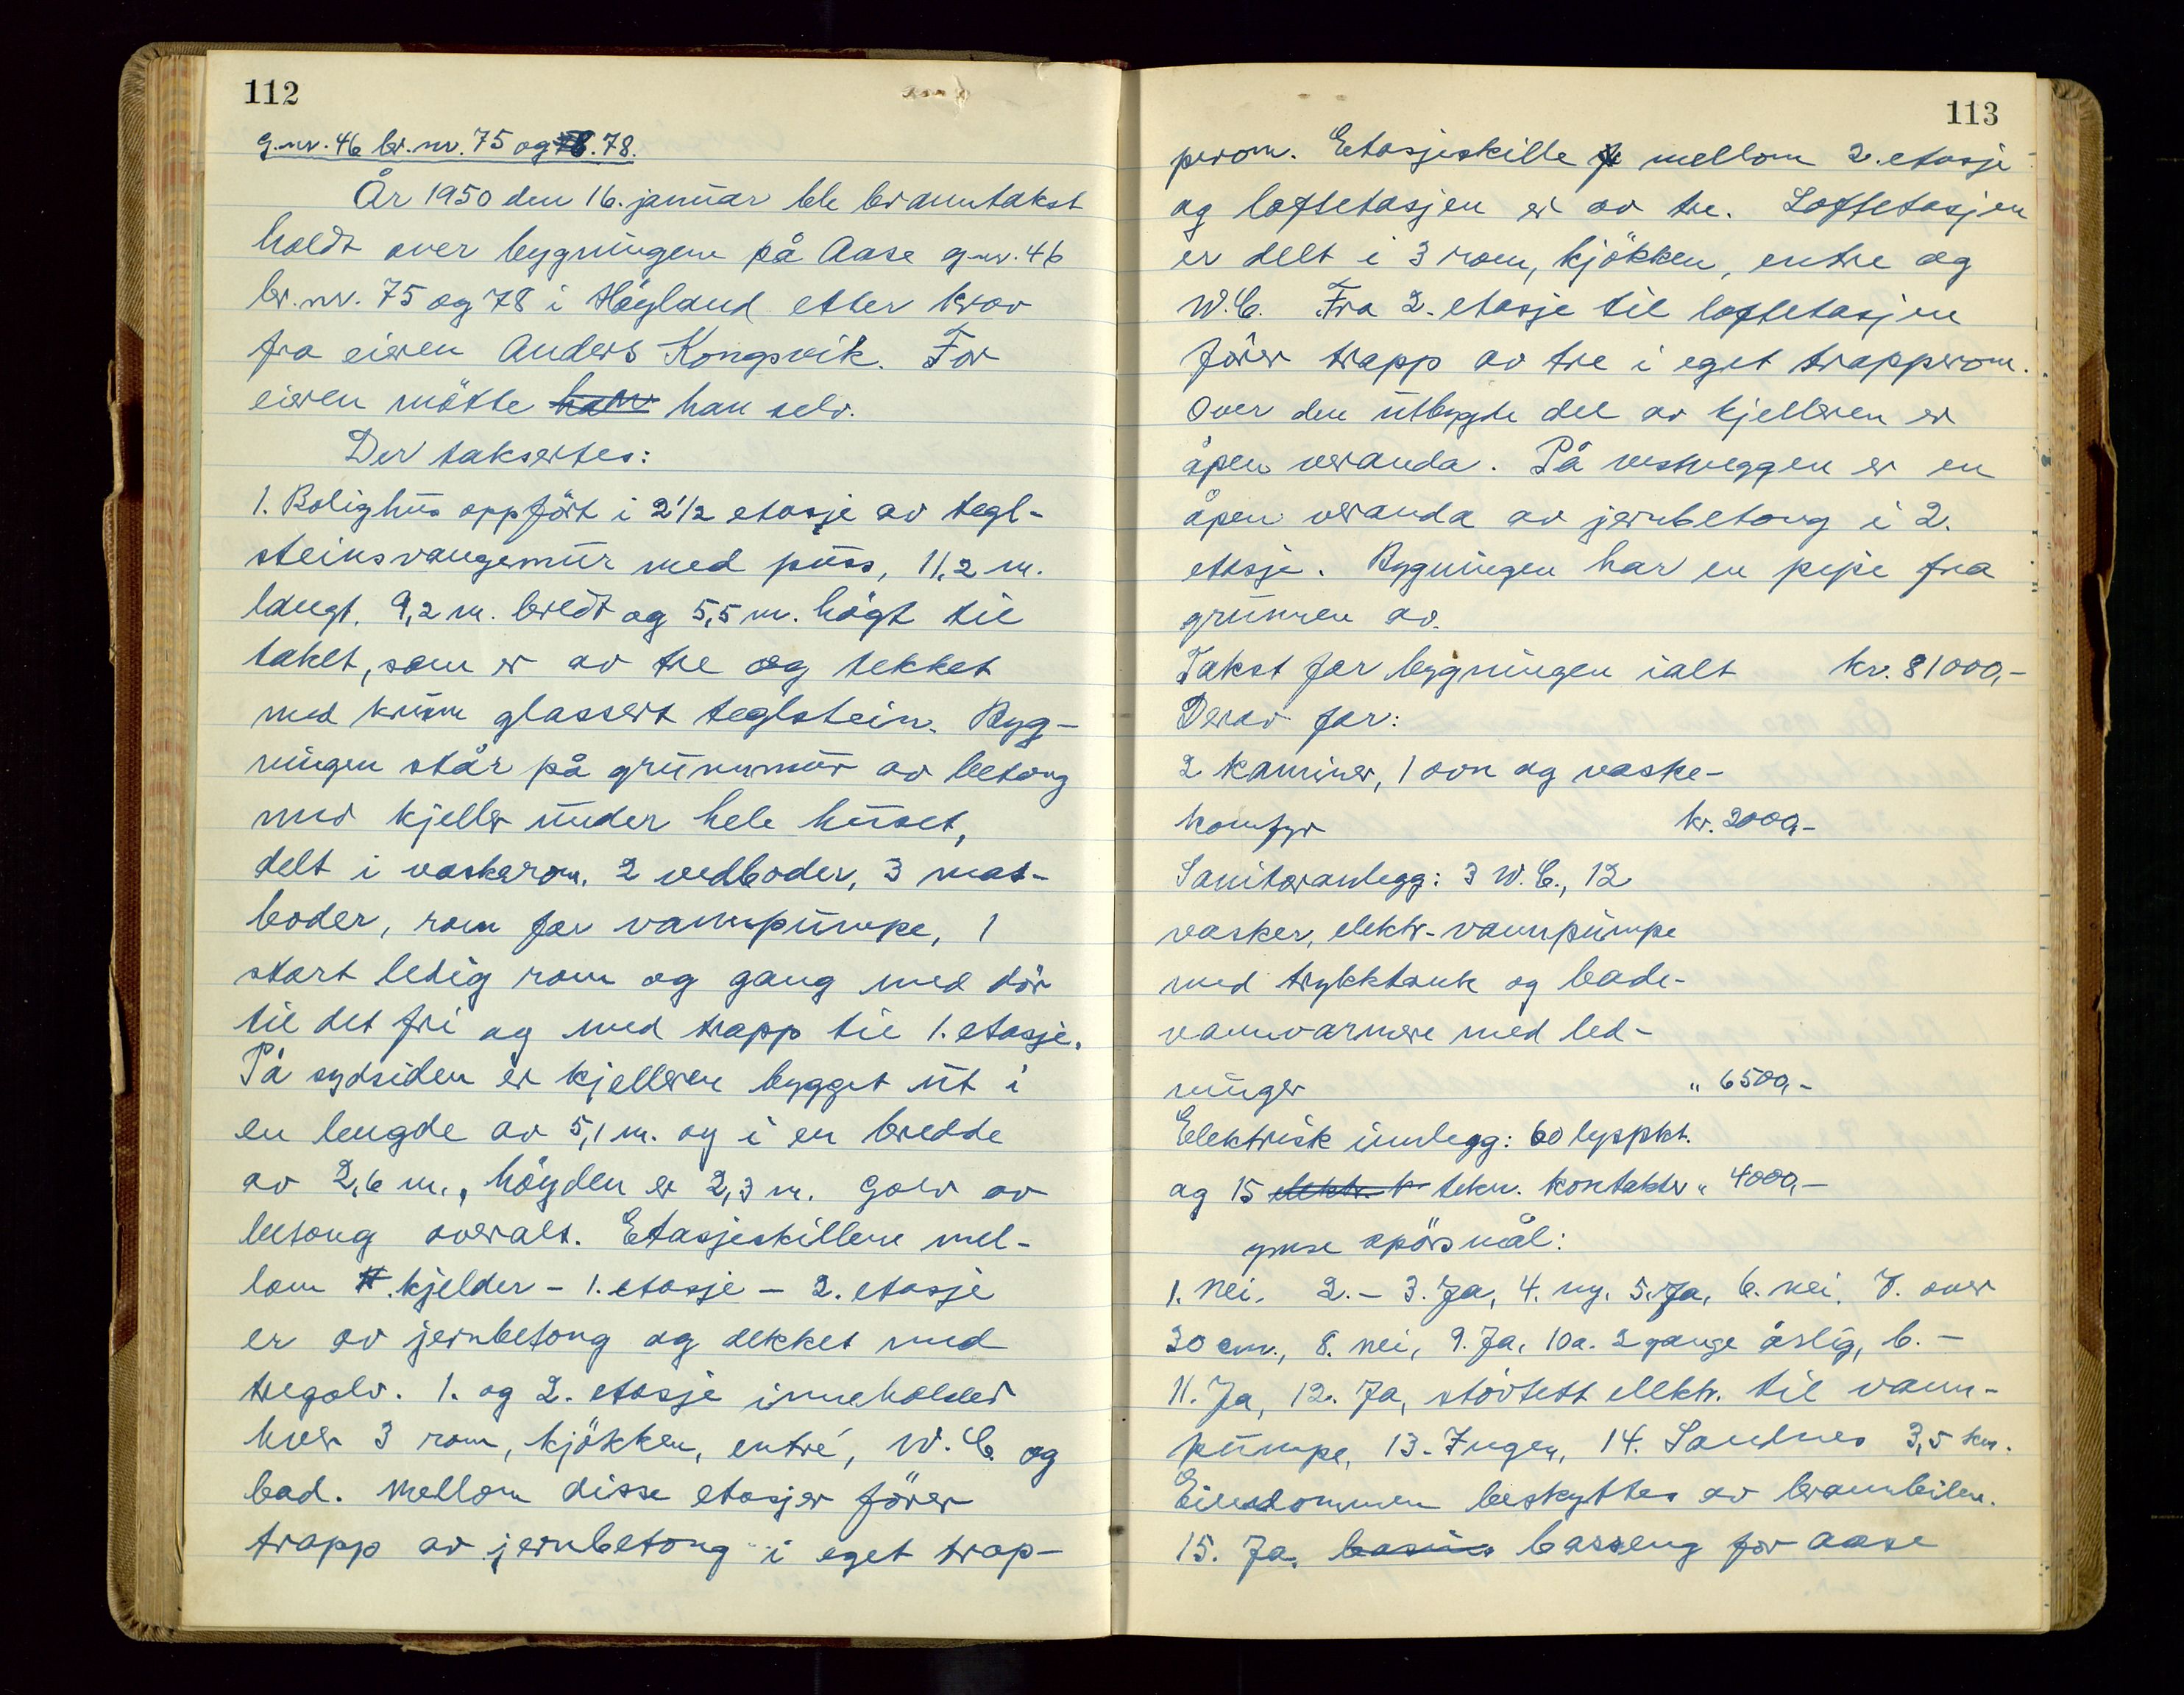 112
g.nr. 46 br.nr. 75 og 78.
År 1950 den 16. januar ble branntakst
holdt over bygningene på Aase g.nr. 46
br.nr. 75 og 78 i Høyland etter krav
fra eieren Anders Kongsvik. For
eieren mötte han han selv.
Der taksertes:
1. Bolighus oppfört i 2 1/2 etasje av tegl-
steinsvangemur med puss, 11,2 m.
langt, 9,2 m. bredt og 5,5 m. högt til
taket, som er av tre og tekket
med krum glassert teglstein. Byg-
ningen står på grunnmur av betong
med kjeller under hele huset,
delt i vaskerom, 2 vedboder, 3 mat-
boder, rom for vannpumpe, 1
stort ledig rom og gang med dör
til det fri og med trapp til 1. etasje.
På sydsiden er kjelleren bygget ut i
en lengde av 5,1 m. og i en bredde
av 2,6 m., höyden er 2,3 m. Golv av
betong overalt. Etasjeskillene mel-
lom kjelder - 1. etasje - 2. etasje
er av jernbetong og dekket med
tregolv. 1. og 2. etasje inneholder
hver 3 rom, kjökken, entré, W.C. og
bad. Mellom disse etasjer förer
trapp av jernbetong i eget trap-
113
perom. Etasjeskille mellom 2. etasje
og loftetasjen er av tre. Loftetasjen
er delt i 3 rom, kjökken, entre og
W.C. Fra 2. etasje til loftetasjen
förer trapp av tre i eget trapperom.
Over den utbygde del av kjelleren er
åpen veranda. På vestveggen er en
åpen veranda av jernbetong i 2.
etasje. Bygningen har en pipe fra
grunnen av.
Takst for bygningen ialt kr. 81000,-
Derav for:
2 kaminer, 1 ovn og vaske-
komfyr kr. 2000,-
Sanitæranlegg: 3 W.C., 12
vasker, elektr. vannpumpe
med trykktank og bade-
vannvarmere med led-
ninger " 6500,-
Elektrisk innlegg: 60 lyspkt.
og 15 elektr. k tekn. kontakter " 4000,-
ymse spörsmål:
1. Nei. 2. - 3. Ja, 4. ny. 5. Ja, 6. nei, 7. over
30 cm., 8. nei, 9. Ja, 10a. 2 gange årlig, b. -
11. Ja, 12. Ja, stövtett elektr. til vann-
pumpe, 13. Ingen, 14. Sandnes 3,5 km.
Eiendommen beskyttes av brannbilen.
15. Ja, basseng for Aase